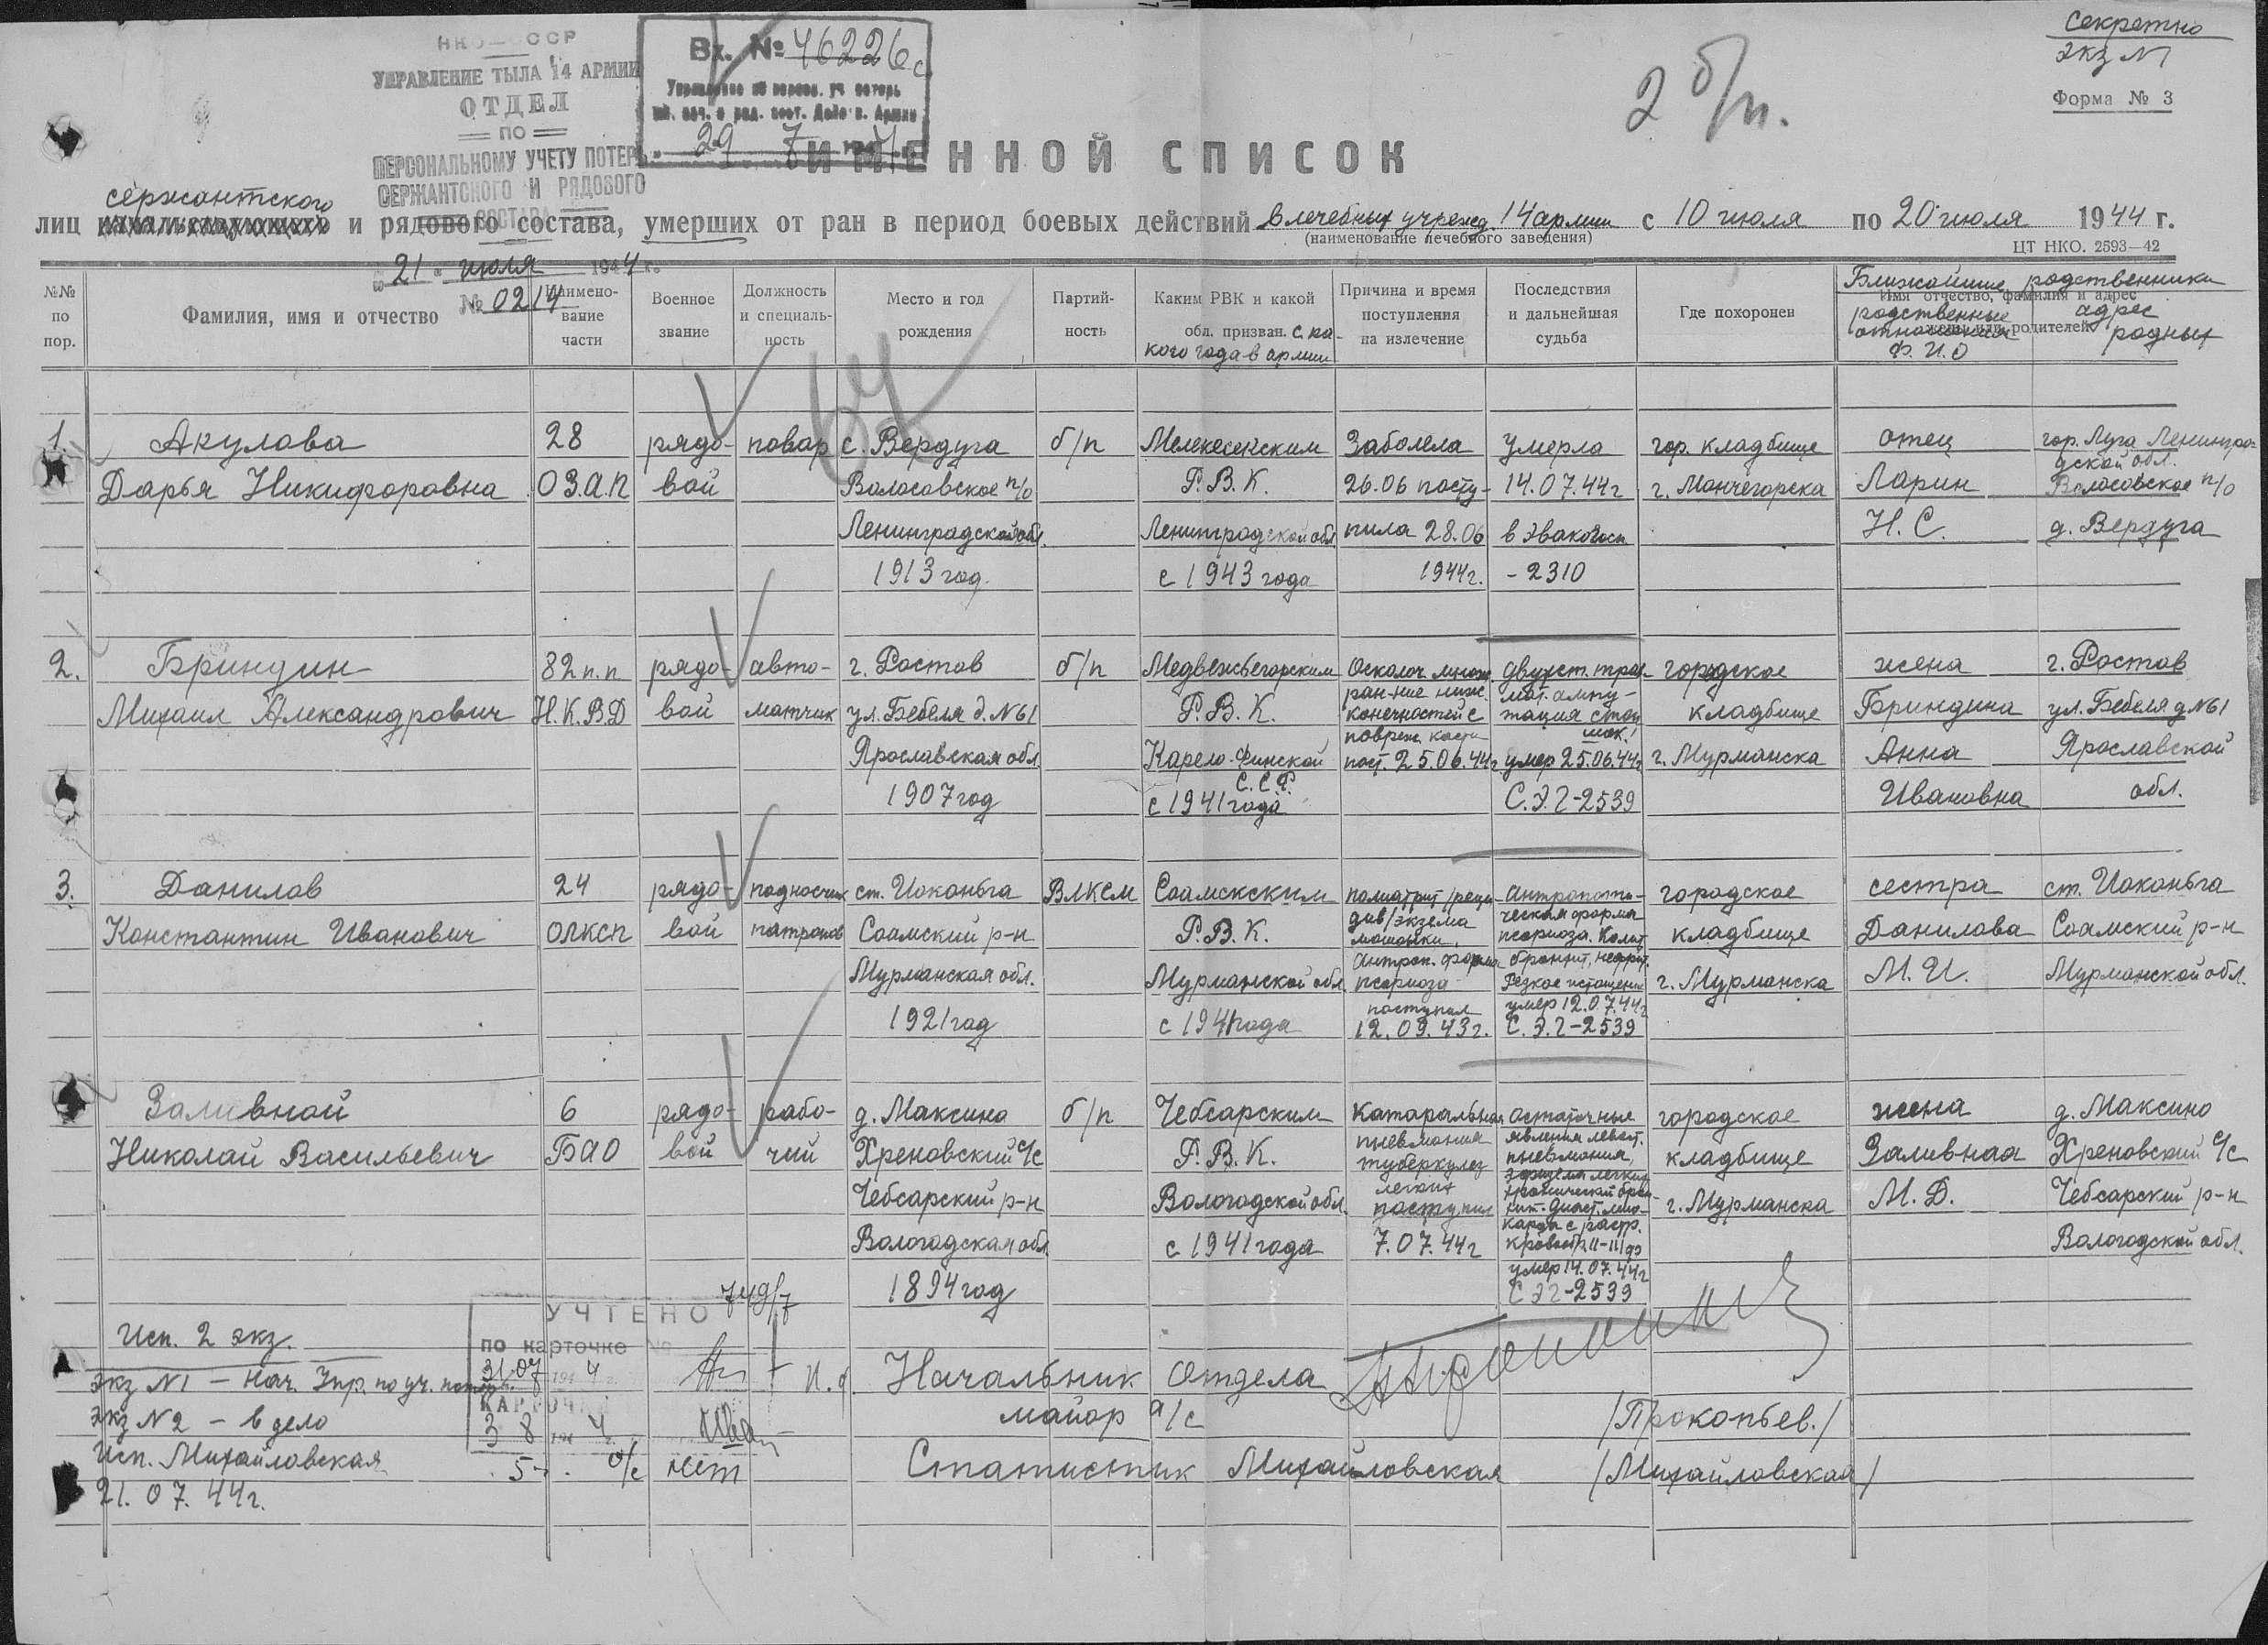 Секретно
экз N 1
Форма № 3
НКО—СССР
УПРАВЛЕНИЕ ТЫЛА 14 АРМИИ
ОТДЕЛ
ПО
ПЕРСОНАЛЬНОМУ УЧЕТУ ПОТЕРЬ
СЕРЖАНТСКОГО И РЯДОВОГО
СОСТАВА
„21“ июля 1944 г.
№ 0214
Вх. № 46226с
29 7
2 б/п.
ИМЕННОЙ СПИСОК
сержантского
лиц и рядового состава, умерших от ран в период боевых действий в лечебных учрежд. 14 армии с 10 июля по 20 июля 1944 г.
(наименование лечебного заведения)
ЦТ НКО. 2593—42
№№ по пор.
Фамилия, имя и отчество
Наимено-вание части
Военное звание
Должность и специаль-ность
Место и год рождения
Партий-ность
Каким РВК и какой обл. призван. с ка-кого года в армии
Причина и время поступления на излечение
Последствия и дальнейшая судьба
Где похоронен
Ближайшие родственники
Имя отчество, фамилия и адрес
родственные отношения Ф.И.О
адрес родных
67
1. Акулова Дарья Никифоровна
28 ОЗАП
рядо-вой
повар
с. Вердуга Волосовское п/о Ленинградской обл. 1913 год.
б/п
Мелекесским Р.В.К. Ленинградской обл. с 1943 года
Заболела 26.06 посту-пила 28.06 1944г.
умерла 14.07.44г в эвакогосп -2310
гор. кладбище г. Мончегорска
отец Ларин Н.С.
гор. Луга Ленинградской обл. Волосовское п/о д. Вердуга
2. Бриндин Михаил Александрович
82 п.п Н.К.В.Д
рядо-вой
авто-матчик
г. Ростов ул. Бебеля д. N61 Ярославская обл 1907 год
б/п
Медвежьегорским Р.В.К. Карело-Финской С.С.Р. с 1941 года
Осколоч. множ. ран-ние ниж. конечностей с повреж. кости пост. 25.06.44г
двухст. трав-мат. ампу-тация стоп шок! умер 25.06.44г С.Э.Г-2539
городское кладбище г. Мурманска
жена Бриндина Анна Ивановна
г. Ростов ул. Бебеля д N61 Ярославской обл.
3. Данилов Константин Иванович
24 ОЛКСП
рядо-вой
подносчик патронов
ст. Иоконьга Саамский р-н Мурманская обл. 1921 год
ВЛКСМ
Саамскским Р.В.К. Мурманской обл. с 1941 года
полиатрит /реци-див/ экзема мошонки. Антроп. форма псориоза поступил 12.09.43г.
форма псориоза. Колит, бронхит, нефрит. Резкое истощение умер 12.07.44г С.Э.Г-2539
городское кладбище г. Мурманска
сестра Данилова М.И.
ст. Иоконьга Саамский р-н Мурманской обл.
Заливной Николай Васильевич
6 БАО
рядо-вой
рабо-чий
д. Максино Хреновский С/с Чебсарский р-н Вологодская обл. 1894 год
б/п
Чебсарским Р.В.К. Вологодской обл. с 1941 года
Катаральная пневмония туберкулез легких поступил 7.07.44г
остаточные явления левост. пневмония, легких хронический брон-хит. мио-карда с расстр. кровообр. II-III умер 14.07.44г С Э Г-2539
городское кладбище г. Мурманска
жена Заливная М.Д.
д. Максино Хреновский С/с Чебсарский р-н Вологодской обл.
УЧТЕНО
по карточке №
749/7
31.07 1944 г.
КАРТОЧКА
3 8 1944 г.
Исп. 2 экз.
экз N1 — Нач. Упр. по уч. потерь.
экз N2 — в дело
Исп. Михайловская
21.07.44г.
И.о. Начальник отдела
майор а/с /Прокопьев./
Статистик Михайловская /Михайловская/